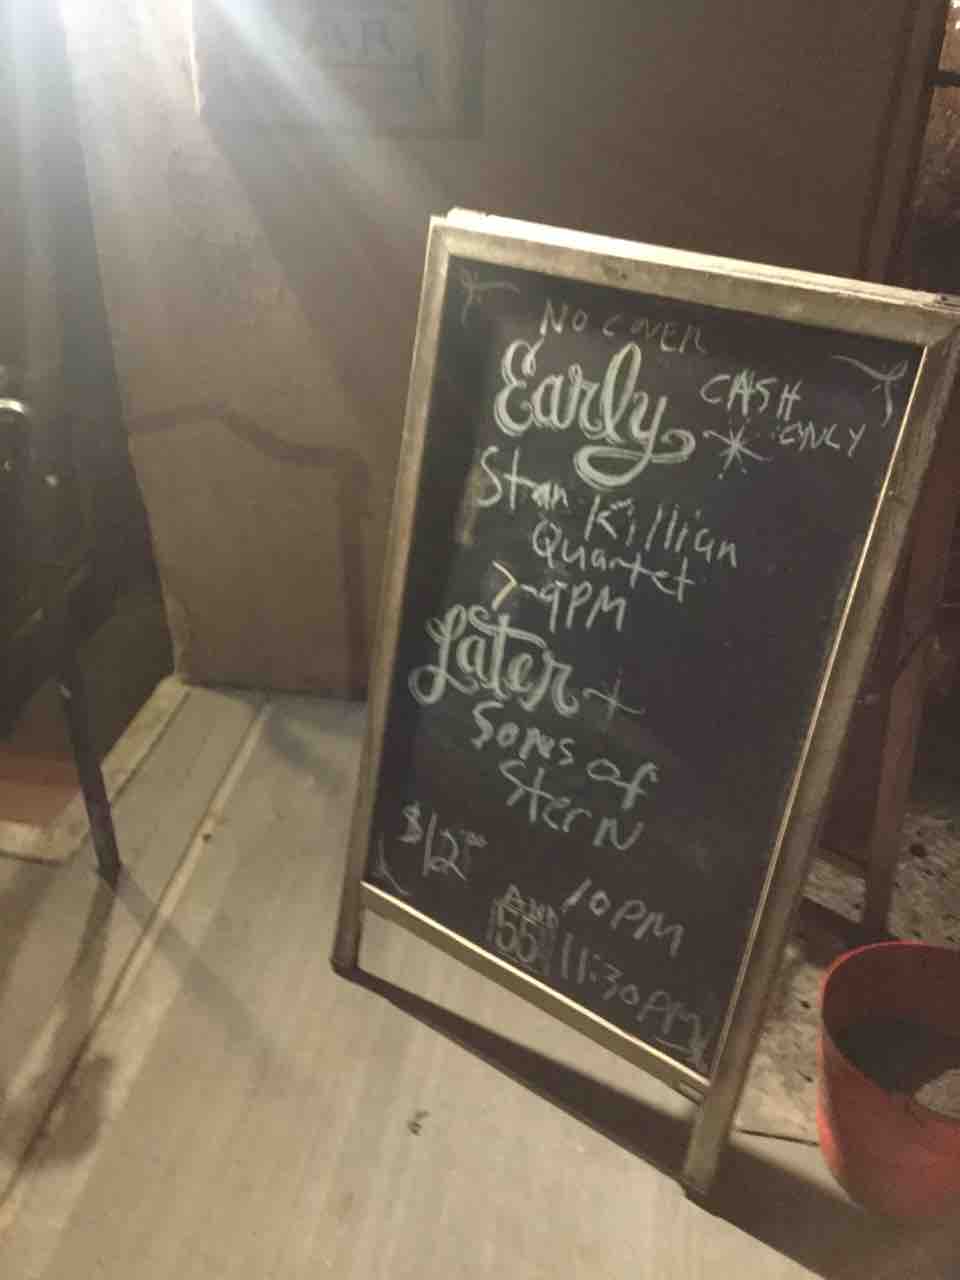 BAR
NO COVER
Early
CASH
ONLY
Stan Killian
Quartet
7-9PM
Later
Sons of
Stern
$12.00
10PM
AND
55
11:30PM